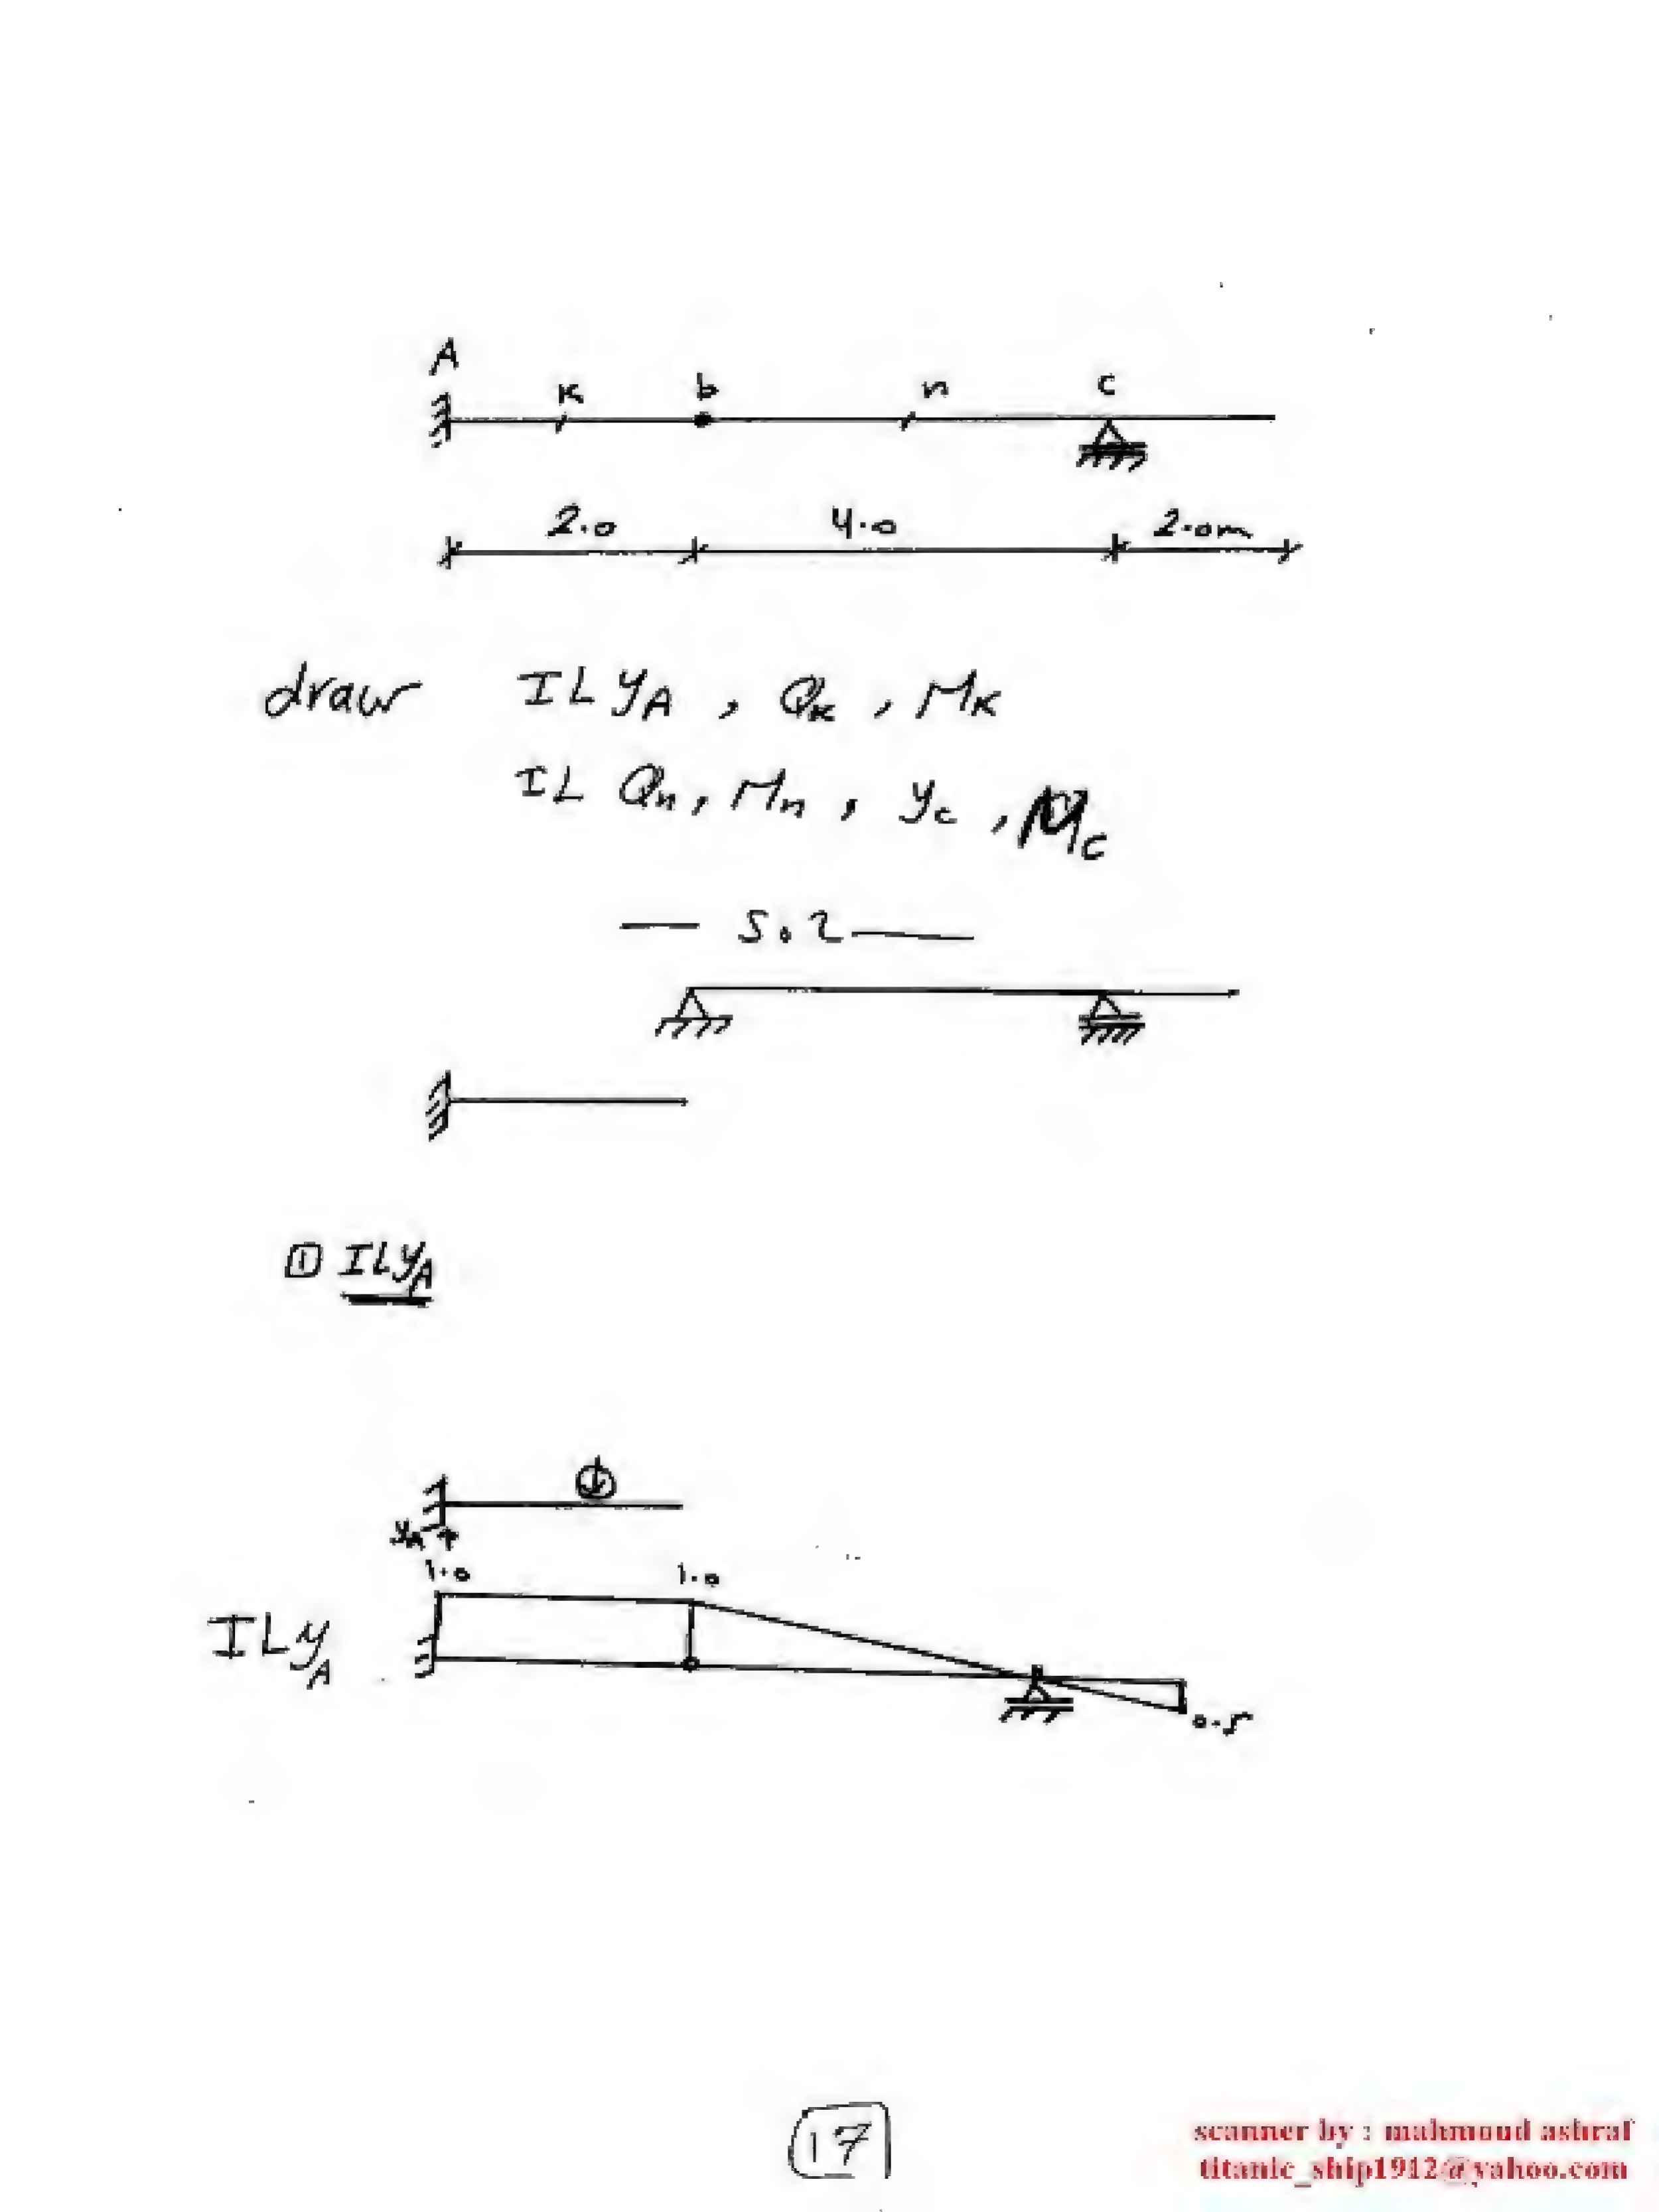 A
K b n c
2.0 4.0 2.0m
draw IL yA , QK , MK
IL Qn , Mn , yc , Mc
— S.2 —
1 ILyA
yA
1.0 1.0
ILyA
0.5
17
scanner by : mahmoud ashraf
titanic_ship1912@yahoo.com